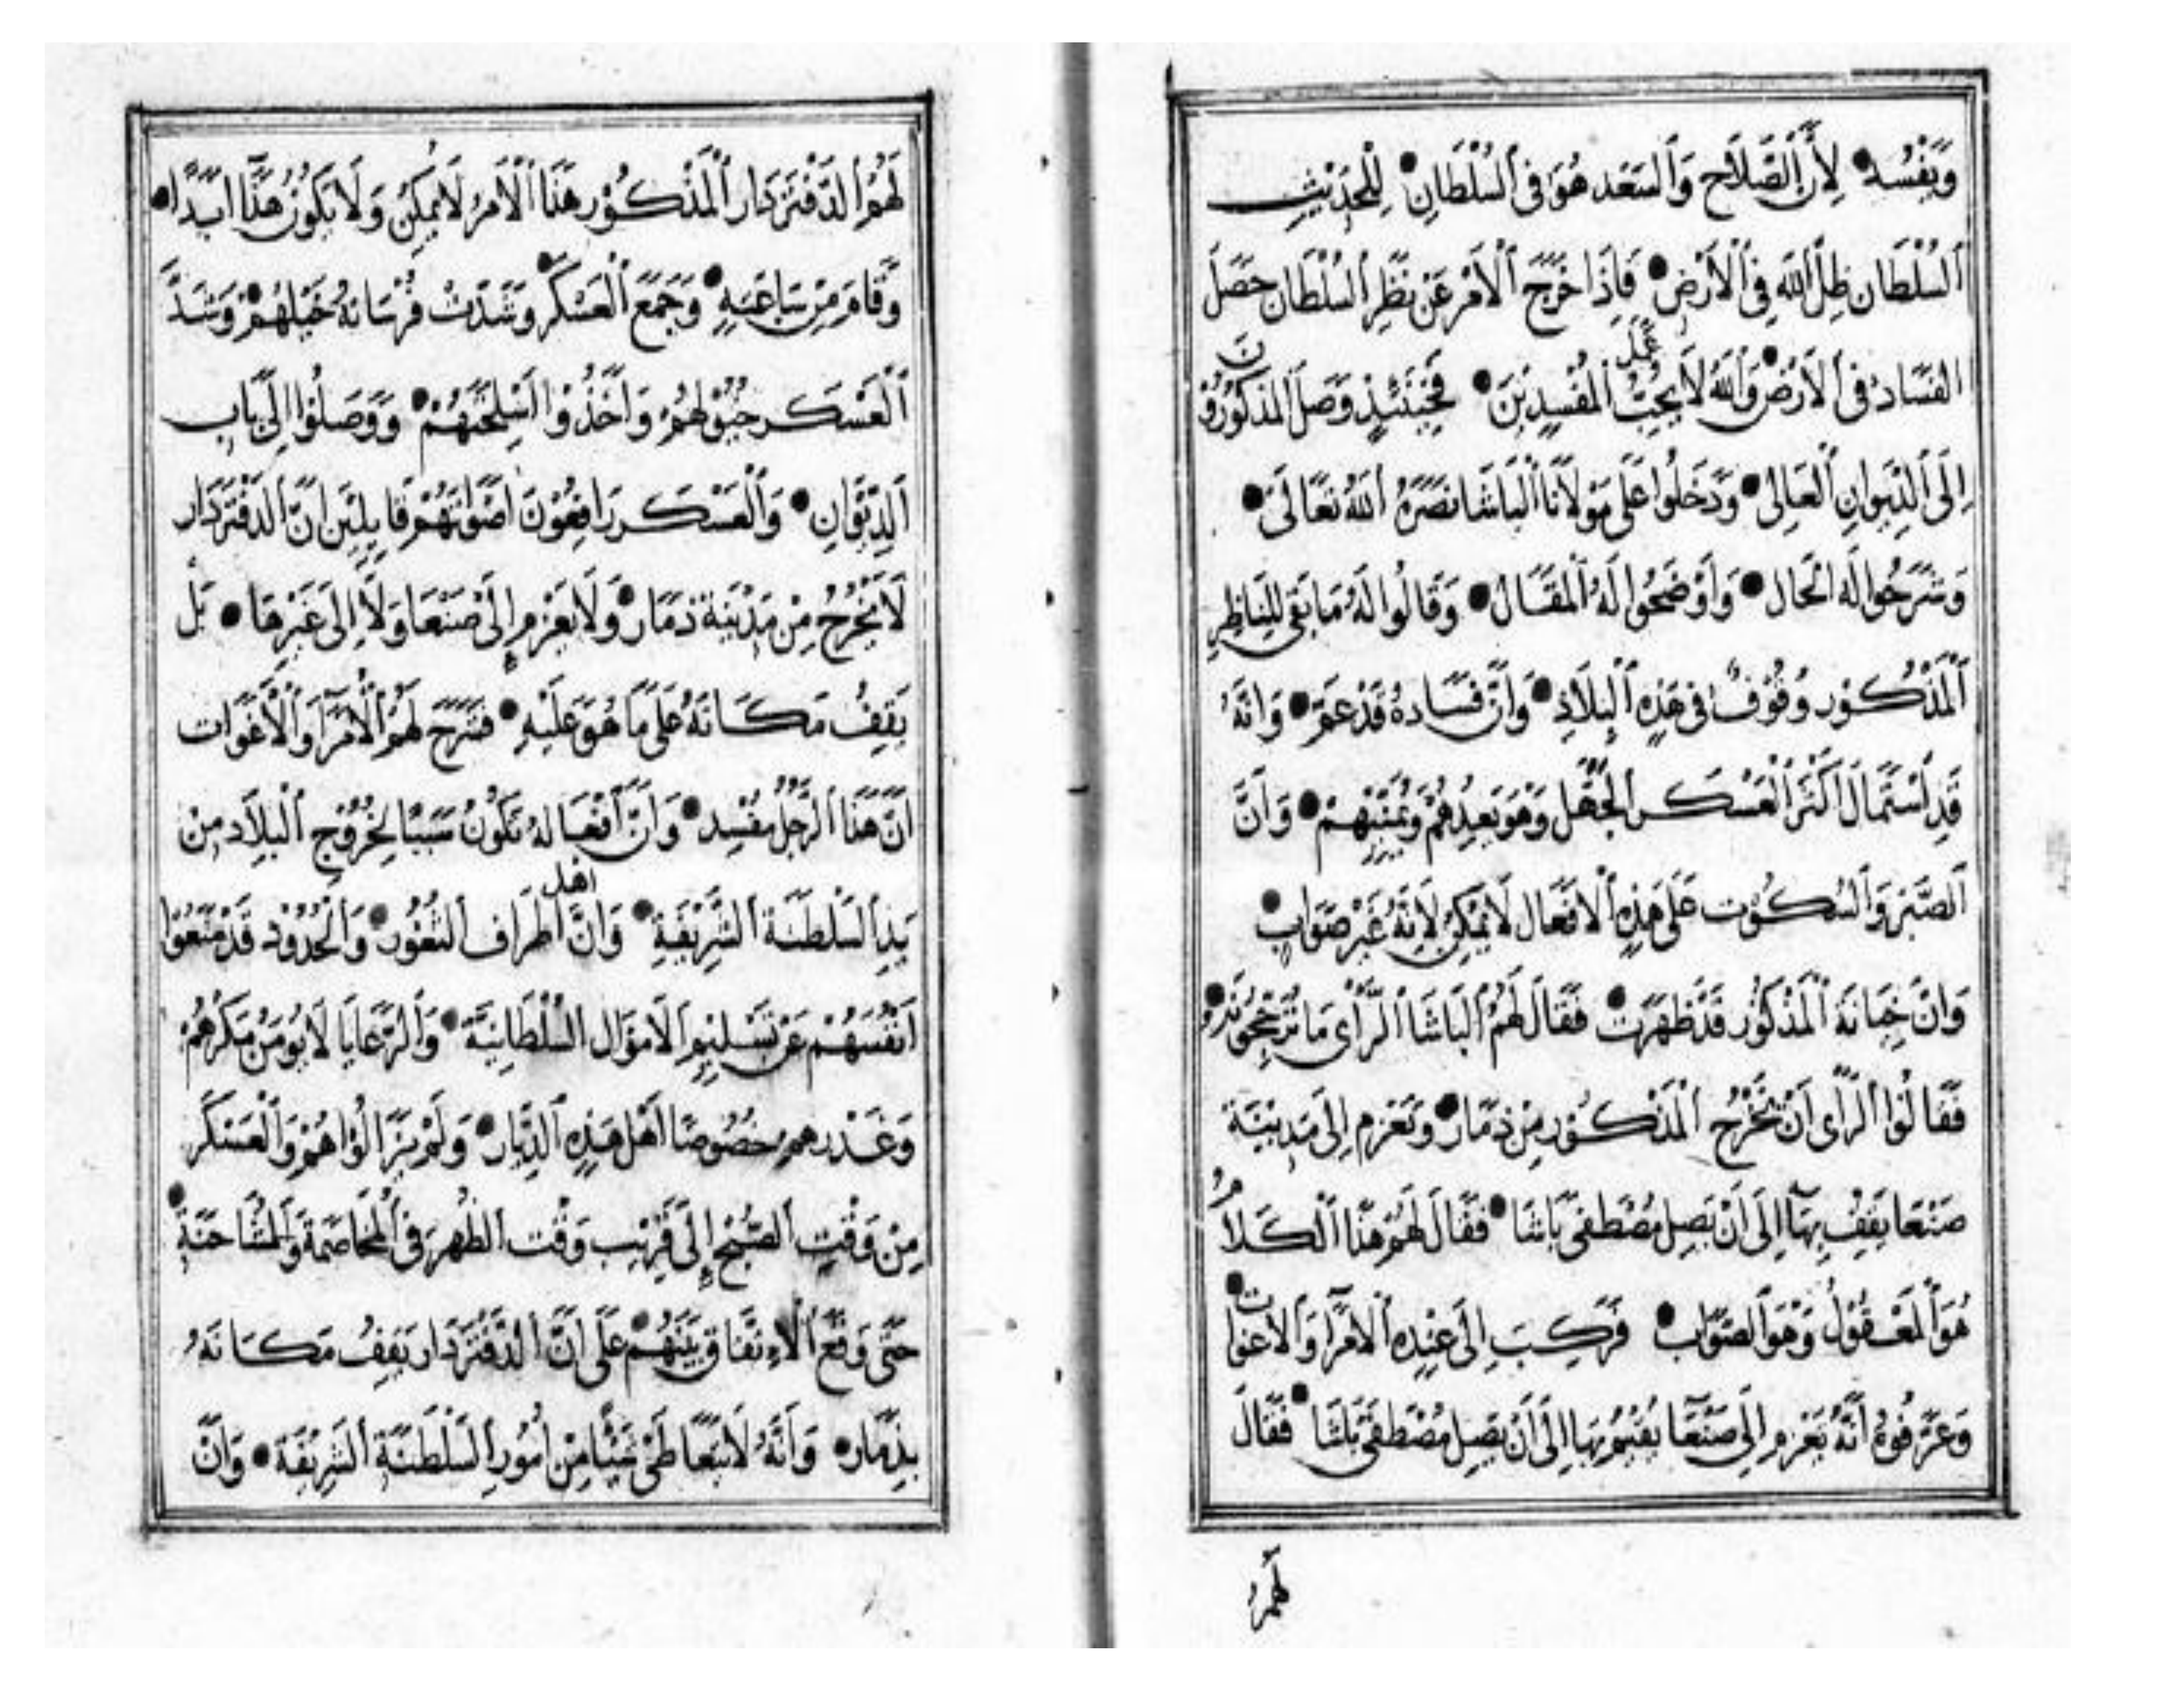 وَيُفْسُد لِأَنَّ الصَّلَاحِ وَالسَّعَد هُوَ فِي السُّلْطَانِ لِلْحَدِيْثِ
السُّلْطَان ظِلُّ اللَّهِ فِي الْأَرْضِ فَإِذَا خَرَجَ الْأَمْرُ عَنْ نَظَرِ السُّلْطَان حَصَلَ
الفَسَادُ فِي الْأَرْضِ وَاللَّهُ لَا يُحِبُّ عَمَلَ الْمُفْسِدِيْنَ فَحِيْنَئِذٍ وَصَلَ الْمَذْكُوْرُوْنَ
إِلَى الدِّيْوَانِ الْعَالِي وَدَخَلُوا عَلَى مَوْلَانَا الْبَاشَا نَصَرَهُ اللَّهُ تَعَالَى
وَشَرَحُوا لَه الْحَال وَأَوْضَحُوا لَهُ الْمَقَال وَقَالُوا لَهُ مَا بَقِيَ لِلنَّاظِرِ
الْمَذْكُوْر وُقُوْفٌ فِي هَذِهِ الْبِلَادِ وَأَنَّ فَسَادَهُ قَدْ عَمَّ وَأَنَّهُ
قَدِ اسْتَمَالَ أَكْثَرَ الْعَسْكَر الْجُهَّل وَهُوَ يَعِيْدُهُمْ وَيُمَنِّيْهِمْ وَأَنَّ
الصَّبْرَ وَالسُّكُوْت عَلَى هَذِهِ الْأَفْعَال لَا يُمْكِنُ لِأَنَّهُ غَيْرُ صَوَابٍ
وَأَنَّ خِيَانَةَ الْمَذْكُوْر قَدْ ظَهَرَتْ فَقَالَ لَهُمُ الْبَاشَا الرَّأْي مَا تُرَجِّحُوْنَهُ
فَقَالُوْا الرَّأْي أَنْ يَخْرُجَ الْمَذْكُوْر مِنْ ذِمَار وَيَعْزِم إِلَى مَدِيْنَةِ
صَنْعَا يَقِفُ بِهَا إِلَى أَنْ يَصِلَ مُصْطَفَى بَاشَا فَقَالَ لَهُمْ هَذَا الْكَلَامُ
هُوَ الْمَعْقُوْلُ وَهُوَ الصَّوَاب فَرَكِبَ إِلَى عِنْدِهِ الْأُمَرَا وَالْأَغَوَات
وَعَرَّفُوْهُ أَنَّهُ يَعْزِم إِلَى صَنْعَا يُقِيْمُ بِهَا إِلَى أَنْ يَصِلَ مُصْطَفَى بَاشَا فَقَالَ
لَهُمُ
لَهُمُ الدَّفْتَرْدَار الْمَذْكُوْر هَذَا الْأَمْرُ لَا يُمْكِنُ وَلَا يَكُوْنُ هَذَا أَبَدًا
وَقَامَ مِنْ سَاعَتِهِ وَجَمَعَ الْعَسْكَر وَشَدَّتْ فُرْسَانُهُ خَيْلَهُمْ وَشَدَّ
الْعَسْكَر خُيُوْلَهُمْ وَأَخَذُوْا أَسْلِحَتَهُمْ وَوَصَلُوْا إِلَى بَاب
الدِّيْوَانِ وَالْعَسْكَر رَافِعُوْنَ أَصْوَاتَهُمْ قَايِلِيْنَ أَنَّ الدَّفْتَرْدَار
لَا يَخْرُجُ مِنْ مَدِيْنَة ذِمَار وَلَا يَعْزِم إِلَى صَنْعَا وَلَا إِلَى غَيْرِهَا بَلْ
يَقِفُ مَكَانَهُ عَلَى مَا هُوَ عَلَيْهِ فَشَرَحَ لَهُمُ الْأُمَرَا وَالْأَغَوَات
أَنَّ هَذَا الرَّجُلَ مُفْسِد وَأَنَّ أَفْعَالهُ تَكُوْنُ سَبَبًا لِخُرُوْجِ الْبِلَاد مِنْ
يَدِ السَّلْطَنَةِ الشَّرِيْفَةِ وَأَنَّ أَهْلَ أَطْرَاف الثُّغُوْر وَالْحُدُوْد قَدْ مَنَعُوْا
أَنْفُسَهُمْ عَنْ تَسْلِيْمِ الْأَمْوَال السُّلْطَانِيَّة وَالرَّعَايَا لَا يُوْمَنُ مَكْرُهُمْ
وَغَدْرهم خُصُوصًا أَهْلَ هَذِهِ الدِّيَار وَلَمْ يَزَالُوْا هُمْ وَالْعَسْكَر
مِنْ وَقْتِ الصُّبْح إِلَى قَرِيْب وَقْت الظُّهْر فِي الْمُخَاصَمَةِ وَالْمُشَاحَنَةِ
حَتَّى وَقَعَ الْاِتِّفَاق بَيْنَهُمْ عَلَى أَنَّ الدَّفْتَرْدَار يَقِفُ مَكَانَهُ
بِذِمَار وَأَنَّهُ لَا يَتَعَاطَى شَيْئًا مِنْ أُمُوْرِ السَّلْطَنَةِ الشَّرِيْفَة وَأَنَّ